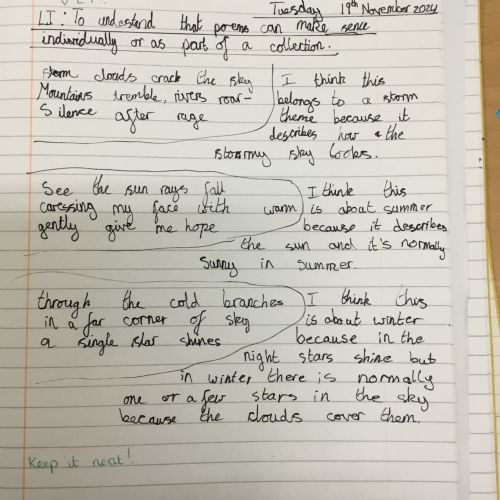 Tuesday 19th November 2024
LI: To understand that poems can make sence
individually or as part of a collection.
Storm clouds crack the sky
Mountains tremble, rivers roar-
Silence after rage
I think this
belongs to a storm
theme because it
describes how the
stormy sky looks.
See the sun rays fall
caressing my face with warm
gently give me hope
I think this
is about summer
because it describes
the sun and it's normally
sunny in summer.
through the cold branches
in a far corner of sky
a single star shines
I think this
is about winter
because in the
night stars shine but
in winter there is normally
one or a few stars in the sky
because the clouds cover them.
Keep it neat!